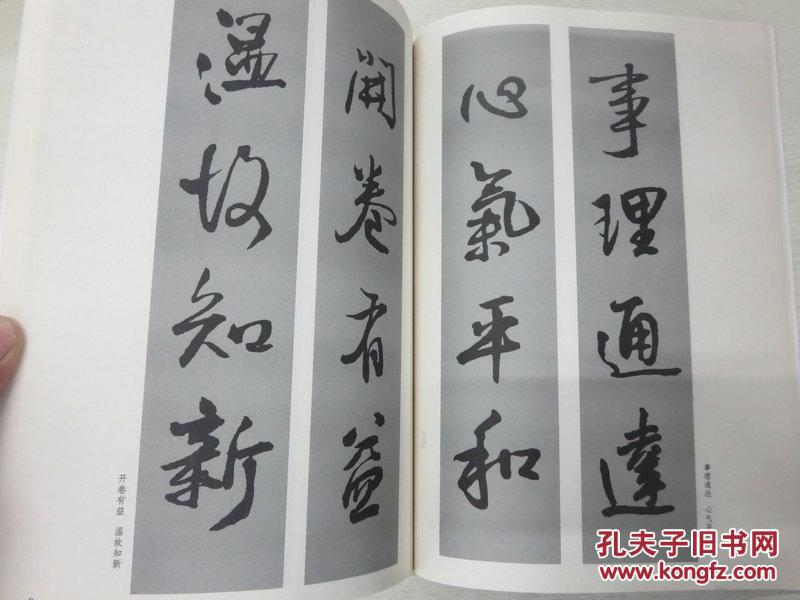 事理通達
心氣平和
事理通达 心气
開卷有益
温故知新
开卷有益 温故知新
孔夫子旧书网
www.kongfz.com